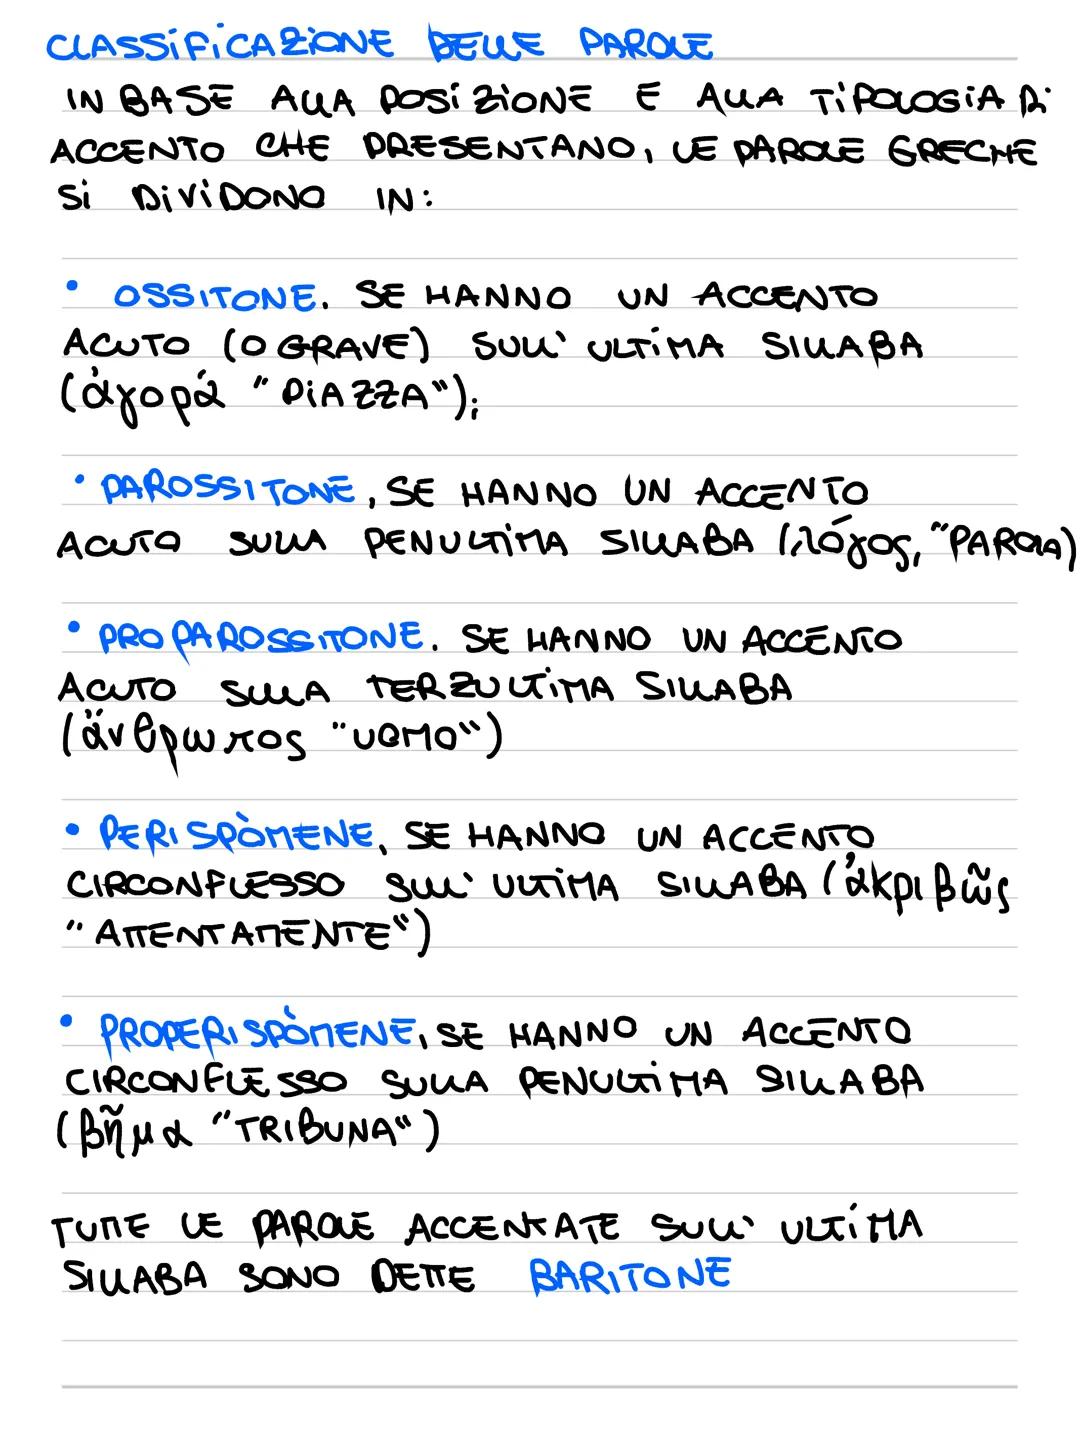 CLASSIFICAZIONE DELLE PAROLE
IN BASE ALLA POSIZIONE E ALLA TIPOLOGIA DI
ACCENTO CHE PRESENTANO, LE PAROLE GRECHE
SI DIVIDONO IN:
• OSSITONE. SE HANNO UN ACCENTO
ACUTO (O GRAVE) SULL' ULTIMA SILLABA
(ἀγορά "PIAZZA");
• PAROSSITONE, SE HANNO UN ACCENTO
ACUTO SULLA PENULTIMA SILLABA (λόγος, "PAROLA)
• PROPAROSSITONE. SE HANNO UN ACCENTO
ACUTO SULLA TERZULTIMA SILLABA
(ἄνθρωπος "UOMO")
• PERISPÒMENE, SE HANNO UN ACCENTO
CIRCONFLESSO SULL' ULTIMA SILLABA (ἀκριβῶς
"ATTENTAMENTE")
• PROPERISPÒMENE, SE HANNO UN ACCENTO
CIRCONFLESSO SULLA PENULTIMA SILLABA
(βῆμα "TRIBUNA")
TUTTE LE PAROLE ACCENTATE SULL' ULTIMA
SILLABA SONO DETTE BARITONE